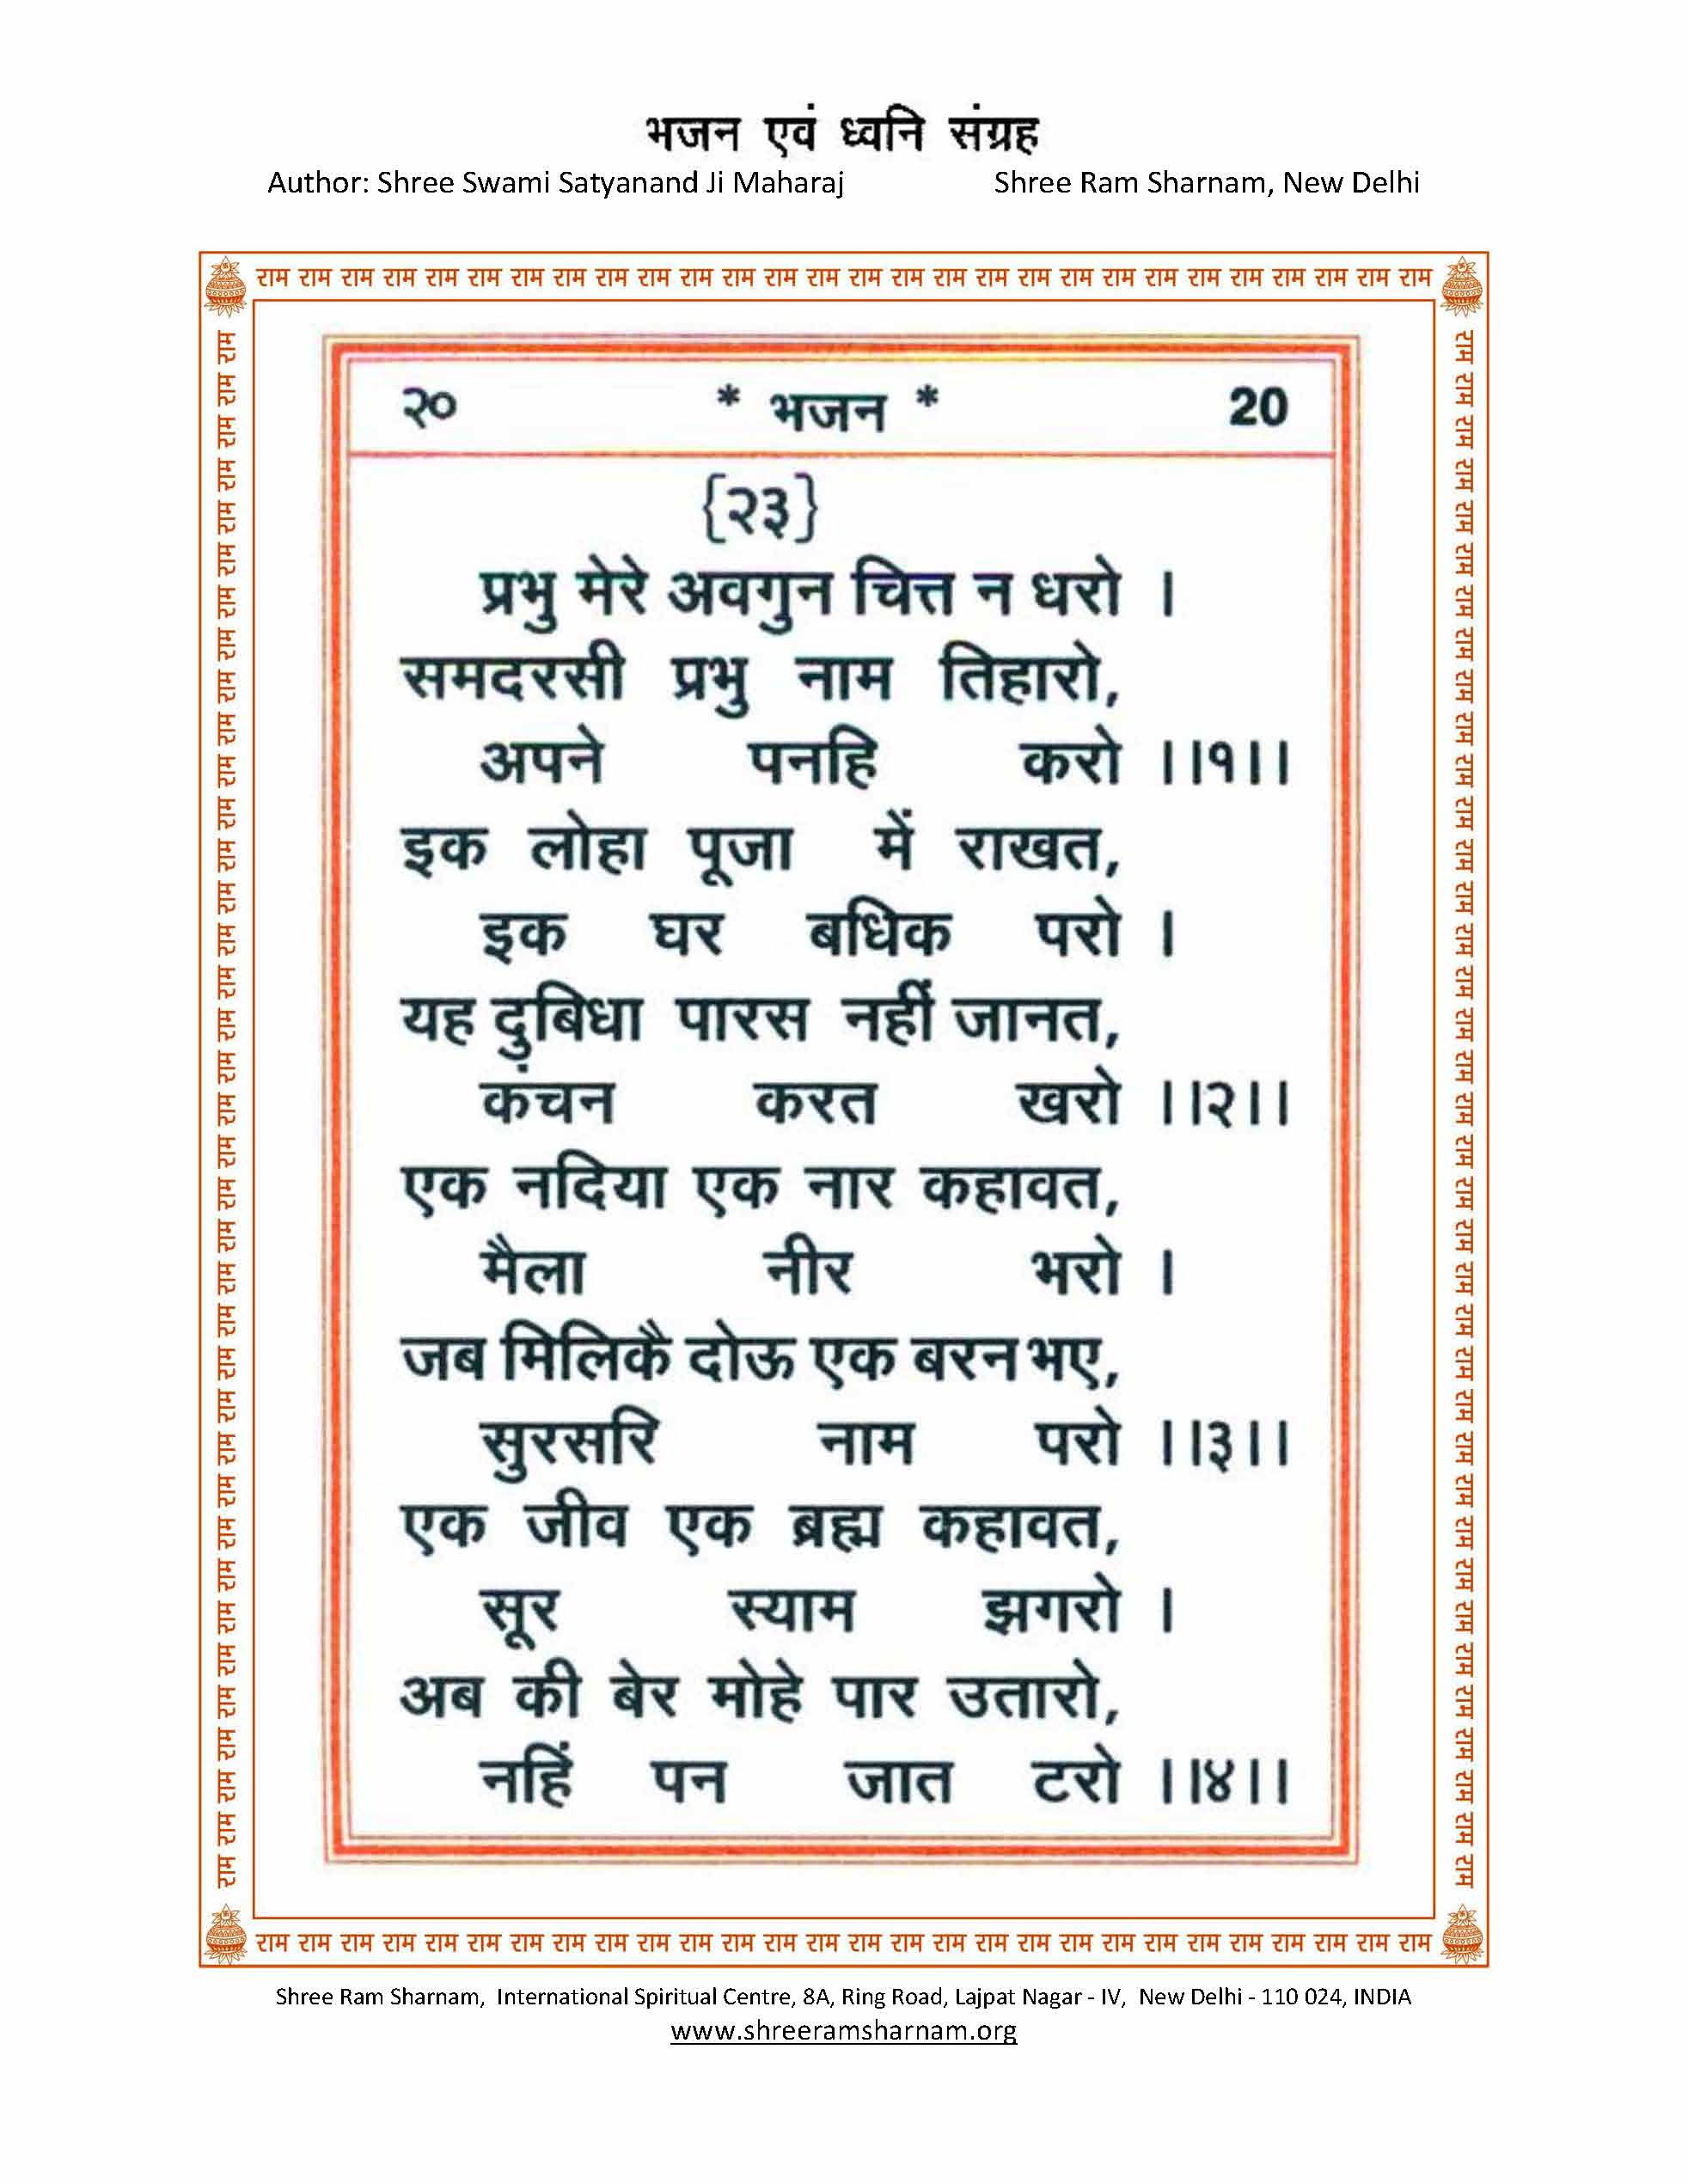 भजन एवं ध्वनि संग्रह
Author: Shree Swami Satyanand Ji Maharaj Shree Ram Sharnam, New Delhi
राम राम राम राम राम राम राम राम राम राम राम राम राम राम राम राम राम राम राम राम राम राम राम राम राम राम राम राम
२० * भजन * 20
{२३}
प्रभु मेरे अवगुन चित्त न धरो ।
समदरसी प्रभु नाम तिहारो,
अपने पनहि करो ।।१।।
इक लोहा पूजा में राखत,
इक घर बधिक परो ।
यह दुबिधा पारस नहीं जानत,
कंचन करत खरो ।।२।।
एक नदिया एक नार कहावत,
मैला नीर भरो ।
जब मिलिकै दोऊ एक बरन भए,
सुरसरि नाम परो ।।३।।
एक जीव एक ब्रह्म कहावत,
सूर स्याम झगरो ।
अब की बेर मोहे पार उतारो,
नहिं पन जात टरो ।।४।।
राम राम राम राम राम राम राम राम राम राम राम राम राम राम राम राम राम राम राम राम राम राम राम राम राम राम राम राम
राम राम राम राम राम राम राम राम राम राम राम राम राम राम राम राम राम राम राम राम राम राम राम राम राम राम राम राम राम राम राम राम राम राम राम राम राम
राम राम राम राम राम राम राम राम राम राम राम राम राम राम राम राम राम राम राम राम राम राम राम राम राम राम राम राम राम राम राम राम राम राम राम राम राम
Shree Ram Sharnam, International Spiritual Centre, 8A, Ring Road, Lajpat Nagar - IV, New Delhi - 110 024, INDIA
www.shreeramsharnam.org